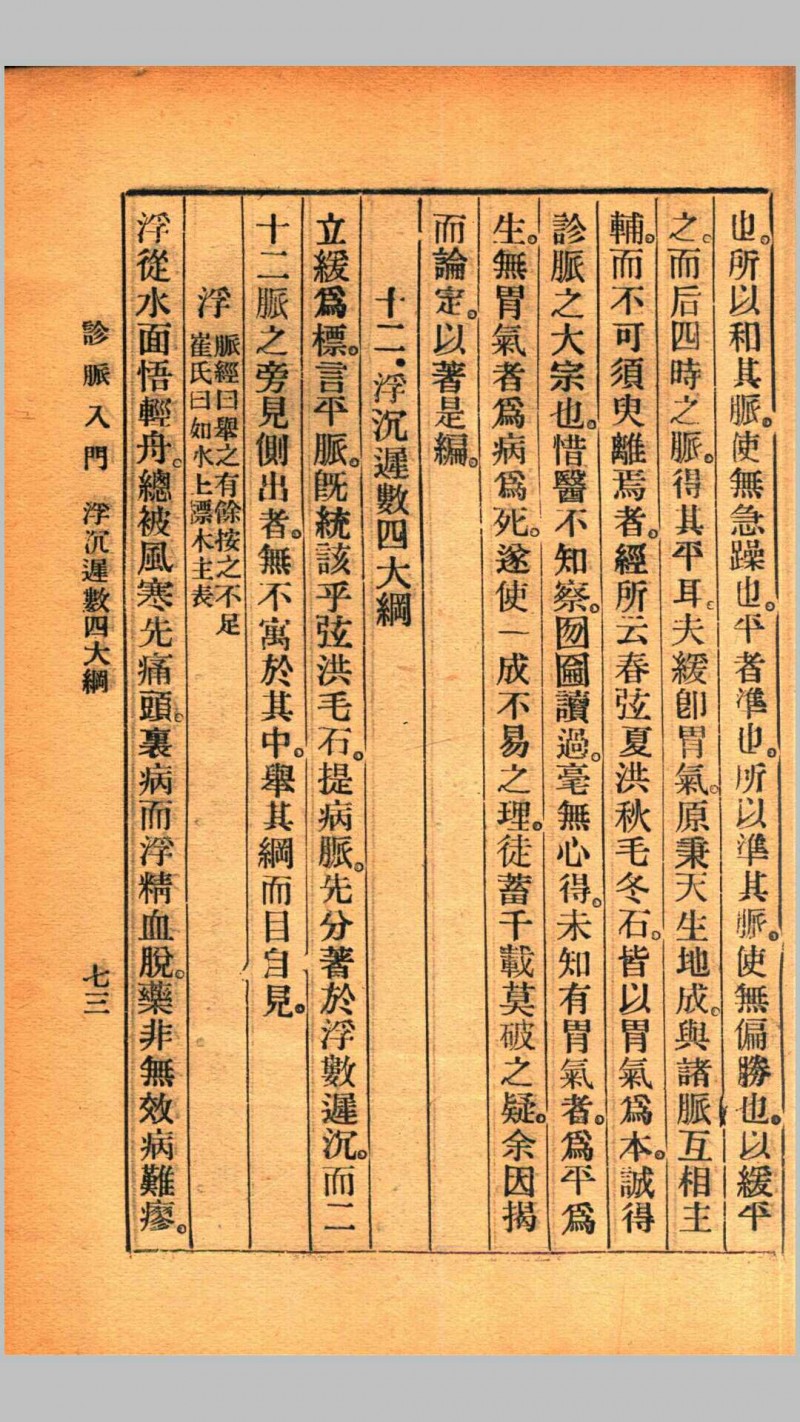 也。所以和其脈。使無急躁也。平者準也。所以準其脈。使無偏勝也。以緩平
之。而后四時之脈。得其平耳。夫緩卽胃氣。原秉天生地成。與諸脈互相主
輔。而不可須臾離焉者。經所云春弦夏洪秋毛冬石。皆以胃氣爲本。誠得
診脈之大宗也。惜醫不知察。囫圇讀過。毫無心得。未知有胃氣者。爲平爲
生。無胃氣者爲病爲死。遂使一成不易之理。徒蓄千載莫破之疑。余因揭
而論定。以著是編。
十二．浮沉遲數四大綱
立緩爲標。言平脈。旣統該乎弦洪毛石。提病脈。先分著於浮數遲沉。而二
十二脈之旁見側出者。無不寓於其中。舉其綱而目自見。
浮
脈經曰舉之有餘按之不足
崔氏曰如水上漂木主表
浮從水面悟輕舟。總被風寒先痛頭。裏病而浮精血脫。藥非無效病難瘳。
診脈入門　浮沉遲數四大綱　七三